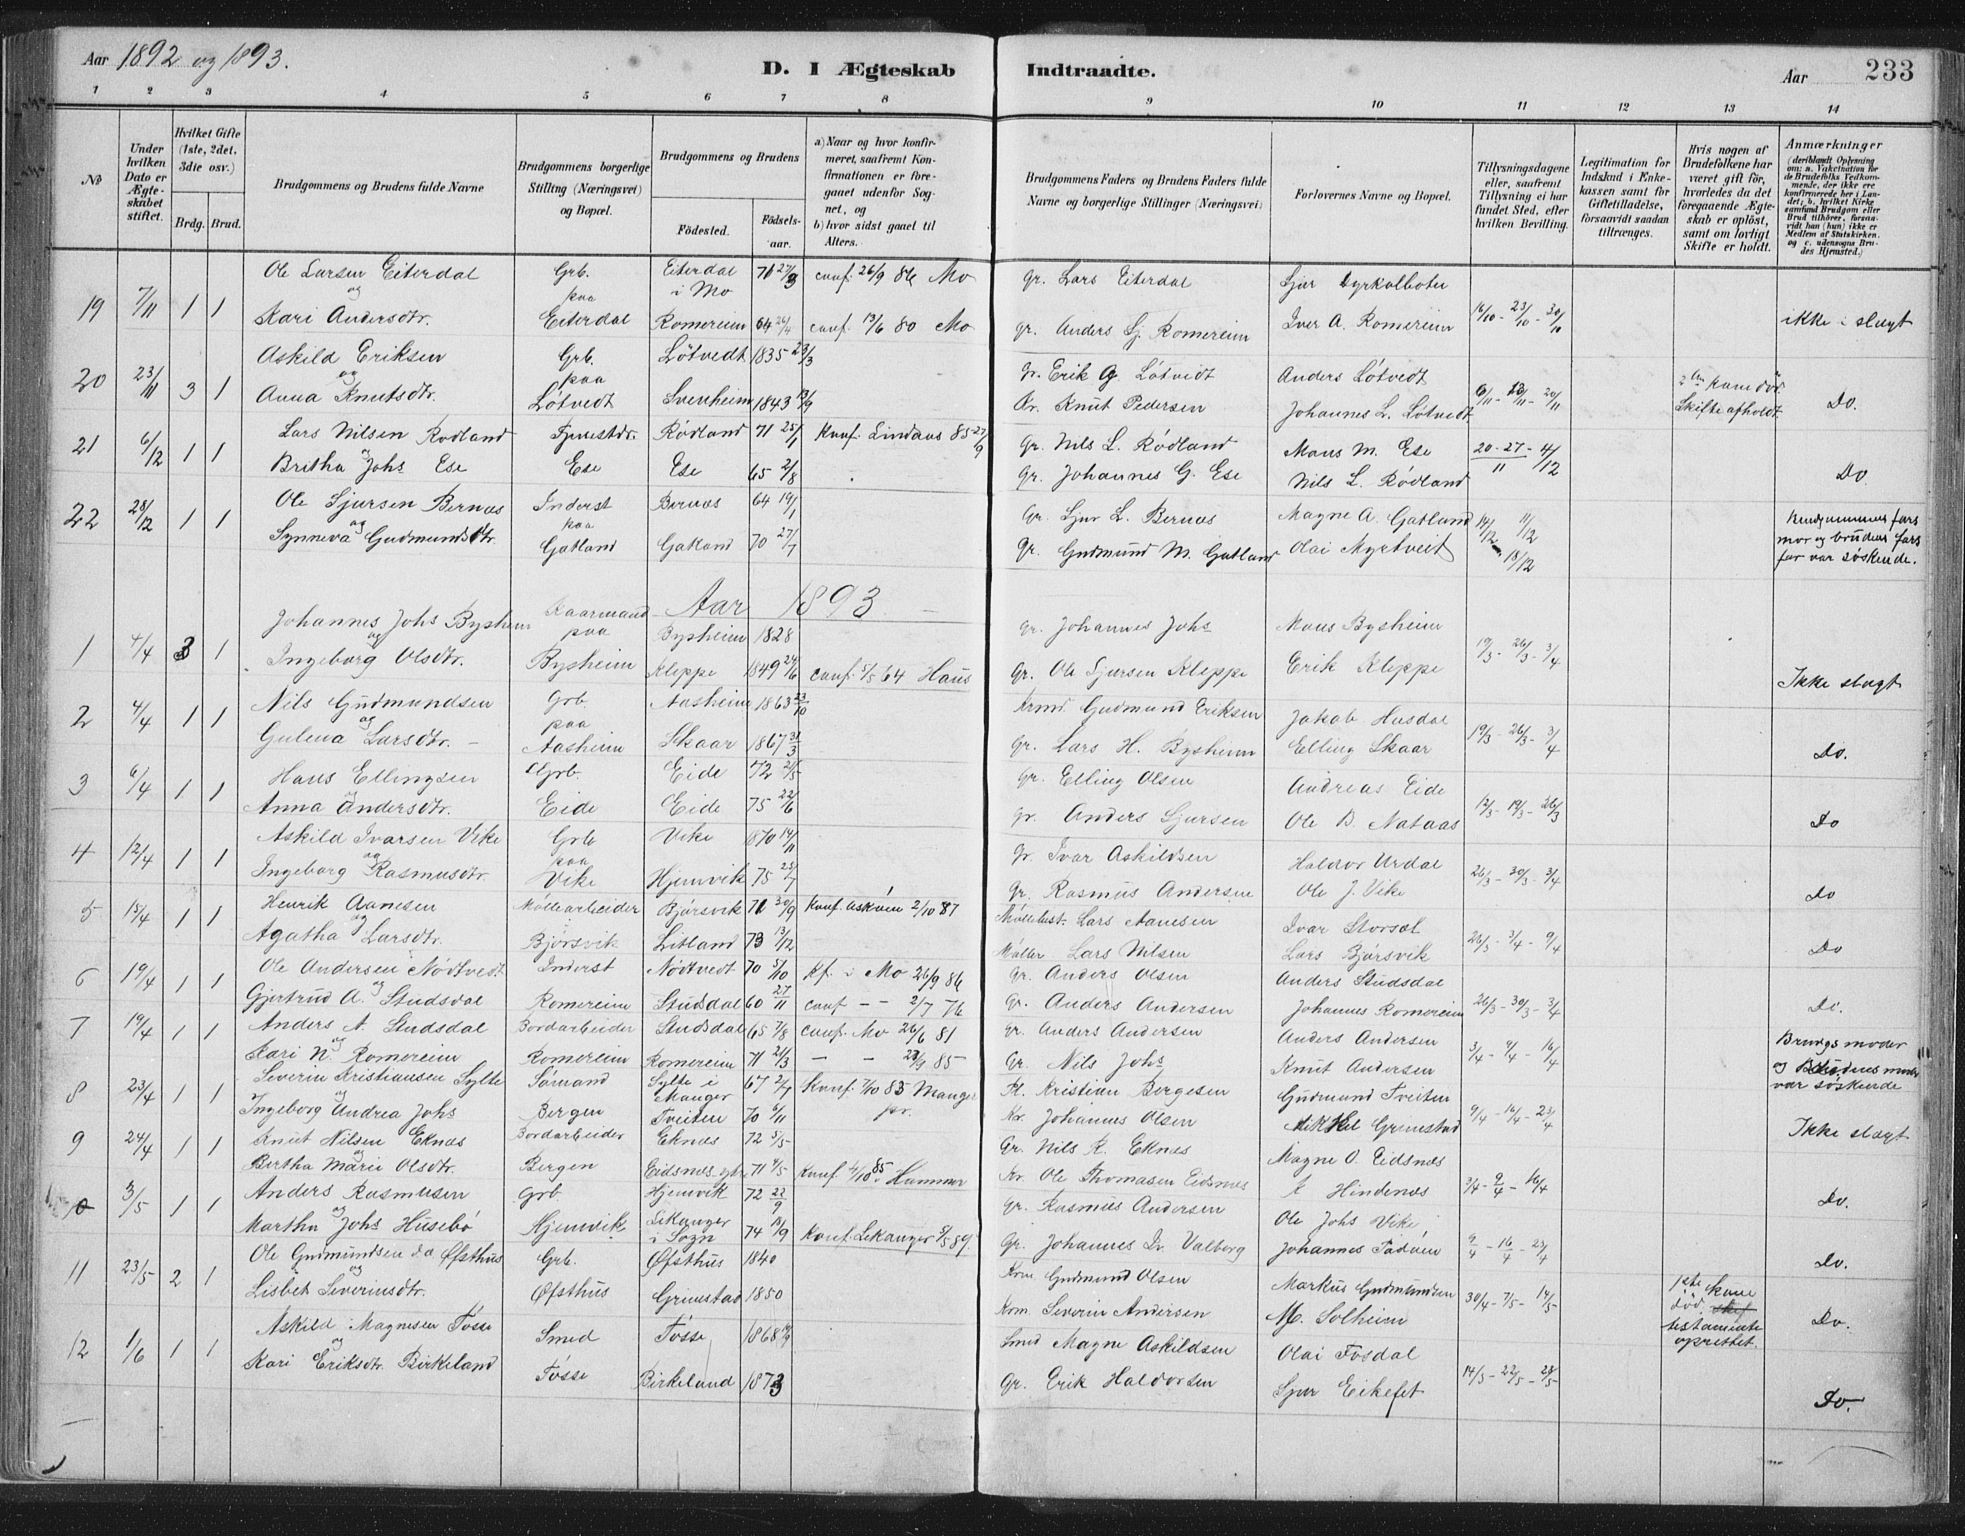 Aar 1892 og 1893.
D. I Ægteskab Indtraadte.
Aar 233
1 2 3 4 5 6 7 8 9 10 11 12 13 14
No
Under hvilken Dato er Ægteskabet stiftet.
Hvilket Gifte (1ste, 2det, 3die osv.)
Brdg. Brud.
Brudgommens og Brudens fulde Navne
Brudgommens borgerlige Stilling (Næringsvei) og Bopæl.
Brudgommens og Brudens
Fødested.
Fødselsaar.
a) Naar og hvor konfirmeret, saafremt Konfirmationen er foregaaet udenfor Sognet, og
b) hvor sidst gaaet til Alters.
Brudgommens Faders og Brudens Faders fulde Navne og borgerlige Stillinger (Næringsvei)
Forlovernes Navne og Bopæl.
Tillysningsdagene eller, saafremt Tillysning ei har fundet Sted, efter hvilken Bevilling.
Legitimation for Indskud i Enkekassen samt for Giftetilladelse, forsaavidt saadan tiltrænges.
Hvis nogen af Brudefolkene har været gift før, hvorledes da det foregaaende Ægteskab er opløst, samt om lovligt Skifte er holdt.
Anmærkninger (deriblandt Oplysning om: a. Vakcination for de Brudefolks Vedkommende, der ikke ere konfirmerede her i Landet; b. hvilket Kirkesamfund Brudgom eller Brud tilhører, forsaavidt han (hun) ikke er Medlem af Statskirken, og c. udensogns Brudes Hjemsted.)
19 7/11 1 1 Ole Larsen Eiterdal Grb. paa Eiterdal i Mo 71 27/3 conf. 26/9 86 Mo Gr. Lars Eiterdal Sjur Dyrkolboten
og Kari Andersdtr. Eiterdal Romereim 64 26/4 conf. 13/6 80 Mo gr. Anders Sj. Romereim Iver A. Romereim 16/10 - 23/10 - 30/10 ikke i slægt
20 23/11 3 1 Askild Eriksen Grb. paa Løtvedt 1835 23/3 Gr. Erik Løtvedt Anders Løtvedt
og Anna Knutsdtr. Løtvedt Svenheim 1843 13/9 Kr. Knut Pedersen Johannes L. Løtvedt 6/11 - 13/11 - 20/11 Skifte afholdt Do.
21 6/12 1 1 Lars Nilsen Rødland Rødland 71 25/1 Konf. Lindaas 85 27/9 Gr. Nils L. Rødland Mons M. Ese 20 - 27 /11 - 4/12
og Britha Johs Ese Ese Ese 65 2/8 Gr. Johannes G. Ese Nils L. Rødland Do
22 28/12 1 1 Ole Sjursen Bernæs Inderst paa Bernæs 64 19/1 Gr. Sjur L. Bernæs Magne A. Gatland 4/12 11/12 18/12 Brudgommens fars mor og brudens fars far var søskende.
og Synneva Gudmundsdtr. Gatland Gatland 70 27/7 Gr. Gudmund M. Gatland Olai Myrtveit
Aar 1893
1 4/4 3 1 Johannes Johs Bysheim Kaarmand paa Bysheim 1828 Gr. Johannes Johs Mons Bysheim
og Ingeborg Olsdtr. Bysheim Kleppe 1849 24/6 conf. 5/5 64 Haus Gr. Ole Sjursen Kleppe Erik Kleppe 19/3 - 26/3 - 3/4 Ikke slægt
2 4/4 1 1 Nils Gudmundsen Grb. paa Aasheim 1863 23/10 Krmd Gudmund Eriksen Jakob Husdal
og Gulena Larsdtr. Aasheim Skaar 1867 31/3 Gr. Lars H. Bysheim Elling Skaar 19/3 - 26/3 - 3/4 Do.
3 6/4 1 1 Hans Ellingsen Grb. Eide 72 21/5 Gr. Elling Olsen Andreas Eide
og Anna Andersdtr. Eide Eide 75 22/6 Gr. Anders Sjursen Ole B. Nataas 12/3 - 19/3 - 26/3 Do
4 12/4 1 1 Askild Ivarsen Vike Grb paa Vike 1870 14/11 Gr. Ivar Askildsen Haldor Urdal
og Ingeborg Rasmusdtr. Vike Hjemvik 75 25/7 Gr. Rasmus Andersen Ole J. Vike 26/3 - 30/3 - 3/4 Do
5 15/4 1 1 Henrik Aanesen Møllearbeider Bjørsvik 71 30/9 Konf. Askøen 2/10 87 Lars Aanesen Ivar Storsæt
og Agatha Larsdtr. Bjørsvik Litland 73 13/12 Møller Lars Nilsen Lars Bjørsvik 26/3 - 3/4 - 9/4 Do
6 19/4 1 1 Ole Andersen Nødtvedt Inderst Nødtvedt 70 5/10 Kf. i Mo 26/9 86 Gr. Anders Olsen Anders Studsdal
og Gjertrud A. Studsdal Romereim Studsdal 60 27/11 conf - - 2/7 76 Gr. Anders Andersen Johannes Romereim 26/3 - 30/3 - 3/4 Do.
7 19/4 1 1 Anders A. Studsdal Bordarbeider Studsdal 65 7/8 conf. Mo 26/6 81 Gr. Anders Andersen Anders Andersen
og Kari N. Romereim Romereim Romereim 71 21/3 - - 85 Gr. Nils Johs Knut Andersen 3/4 - 9/4 - 16/4 Brudgs moder og Brudens moder var søskende
8 23/4 1 1 Severin Kristiansen Sylte Sømand Sylte i Manger 67 2/7 Konf. 7/10 83 Manger pr. Pl. Kristian Børgesen Gudmund Tveiten
og Ingeborg Andrea Johs Bergen Tveiten 70 6/11 Kr. Johannes Olsen Mikkel Grimstad 9/4 - 16/4 - 23/4 Ikke slægt
9 24/4 1 1 Knut Nilsen Eknæs Bordarbeider Eknæs 72 5/5 Gr. Nils K. Eknæs Magne O. Eidsnæs
og Bertha Marie Olsdtr. Bergen Eidsnæs 71 4/5 Konf. 4/10 85 Hammer Kr. Ole Thomasen Eidsnæs K Hindenæs 3/4 - 9/4 - 16/4 Do.
10 3/5 1 1 Anders Rasmusen Grb. Hjemvik 72 22/9 Gr. Rasmus Andersen Ole Johs Vike
og Martha Johs Husebø Hjemvik Lekanger i Sogn 74 13/9 Konf. Lekanger 5/5 89. Gr. Johannes Iv. Valborg Johannes 9/4 - 16/4 - 23/4 Do.
11 23/5 2 1 Ole Gudmundsen Øfsthus Grb. Øfsthus 1840 Krm Gudmund Olsen Markus Gudmundsen
og Lisbet Severinsdtr. Øfsthus Grimstad 1850 Krm. Severin Andersen M. Solheim 30/4 - 7/5 - 14/5 1ste kone død. testamente oprettet. Do.
12 1/6 1 1 Askild Magnesen Fosse Smed Fosse 1868 Smed Magne Askildsen Olai Fosdal
og Kari Eriksdtr. Birkeland Fosse Birkeland 1873 Gr. Erik Haldorsen Sjur Eikefet 14/5 - 22/5 - 28/5 Do.